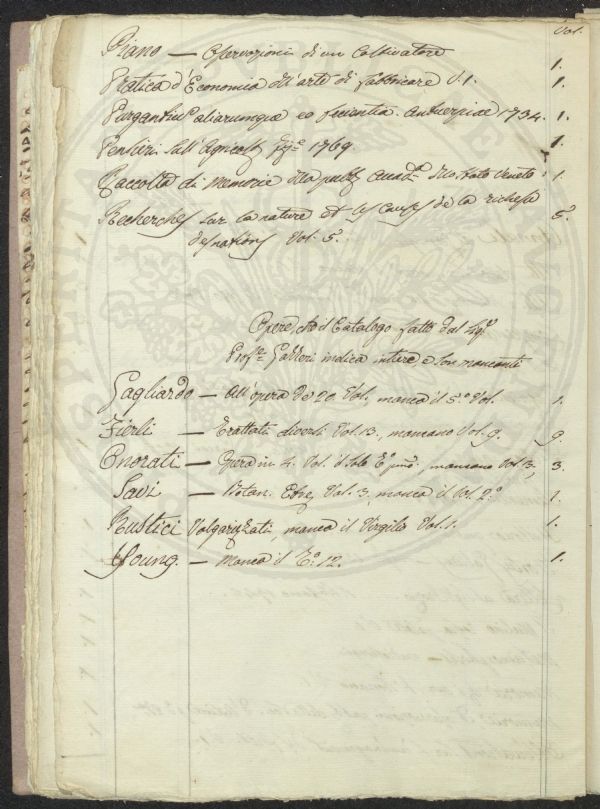 Vol.
Piano — Osservazioni di un Coltivatore 1.
Pratica d'Economia dell'arte di fabbricare V. 1. 1.
Purgantium aliarumque eo Antuerpiae 1734. 1.
Pensieri sull'Agricolt. 1769. 1.
Raccolta di Memorie delle pubb. Accad. dello Stato Veneto. 1.
Recherches sur la nature et les Causes de la richesse 5.
des nations Vol. 5.
Opere, che il Catalogo fatto dal Sig.r
Prof.re Galleri indica intere, e son mancanti
Gagliardo — All'opera de 20. Vol., manca il 5.o Vol. 1.
Fierli — Trattati diversi Vol. 13., mancano Vol. 9. 9.
Onorati — Opera in 4. Vol. il solo T.o pmo., mancano Vol. 3., 3.
Savi — Botan. Etre. Vol. 3., manca il Vol. 2.o 1.
Rustici Volgarizzati, manca il Virgilio Vol. 1. 1.
Young. — Manca il T.o 12. 1.